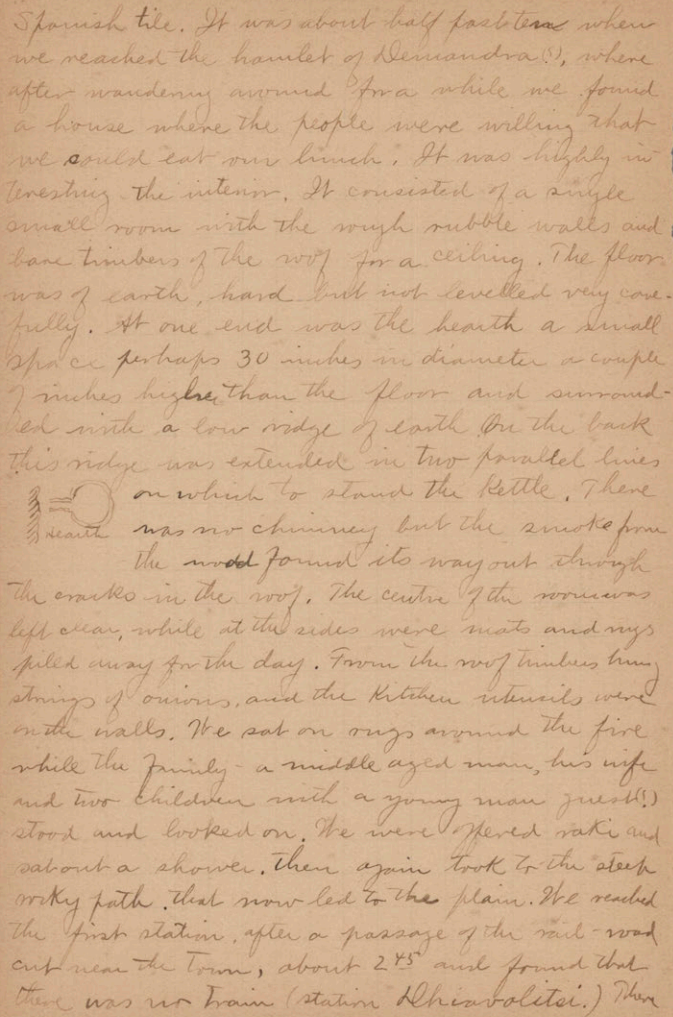 Spanish tile. It was about half past ten when
we reached the hamlet of Demandra(?), where
after wandering around for a while we found
a house where the people were willing that
we could eat our lunch. It was highly in-
teresting the interior. It consisted of a single
small room with the rough rubble walls and
bare timbers of the roof for a ceiling. The floor
was of earth, hard but not levelled very care-
fully. At one end was the hearth a small
space perhaps 30 inches in diameter a couple
of inches higher than the floor and surround-
ed with a low ridge of earth On the back
this ridge was extended in two parallel lines
on which to stand the kettle. There
Hearth was no chimney but the smoke from
the wood found its way out through
the cracks in the roof. The centre of the room was
left clear, while at the sides were mats and rugs
piled away for the day. From the roof timbers hung
strings of onions, and the kitchen utensils were
on the walls. We sat on rugs around the fire
while the family - a middle aged man, his wife
and two children with a young man guest(?)
stood and looked on. We were offered raki and
sat out a shower, then again took to the steep
rocky path that now led to the plain. We reached
the first station, after a passage of the rail-road
cut near the town, about 2 45 and found that
there was no train (station Dhiavolitsi.) Then